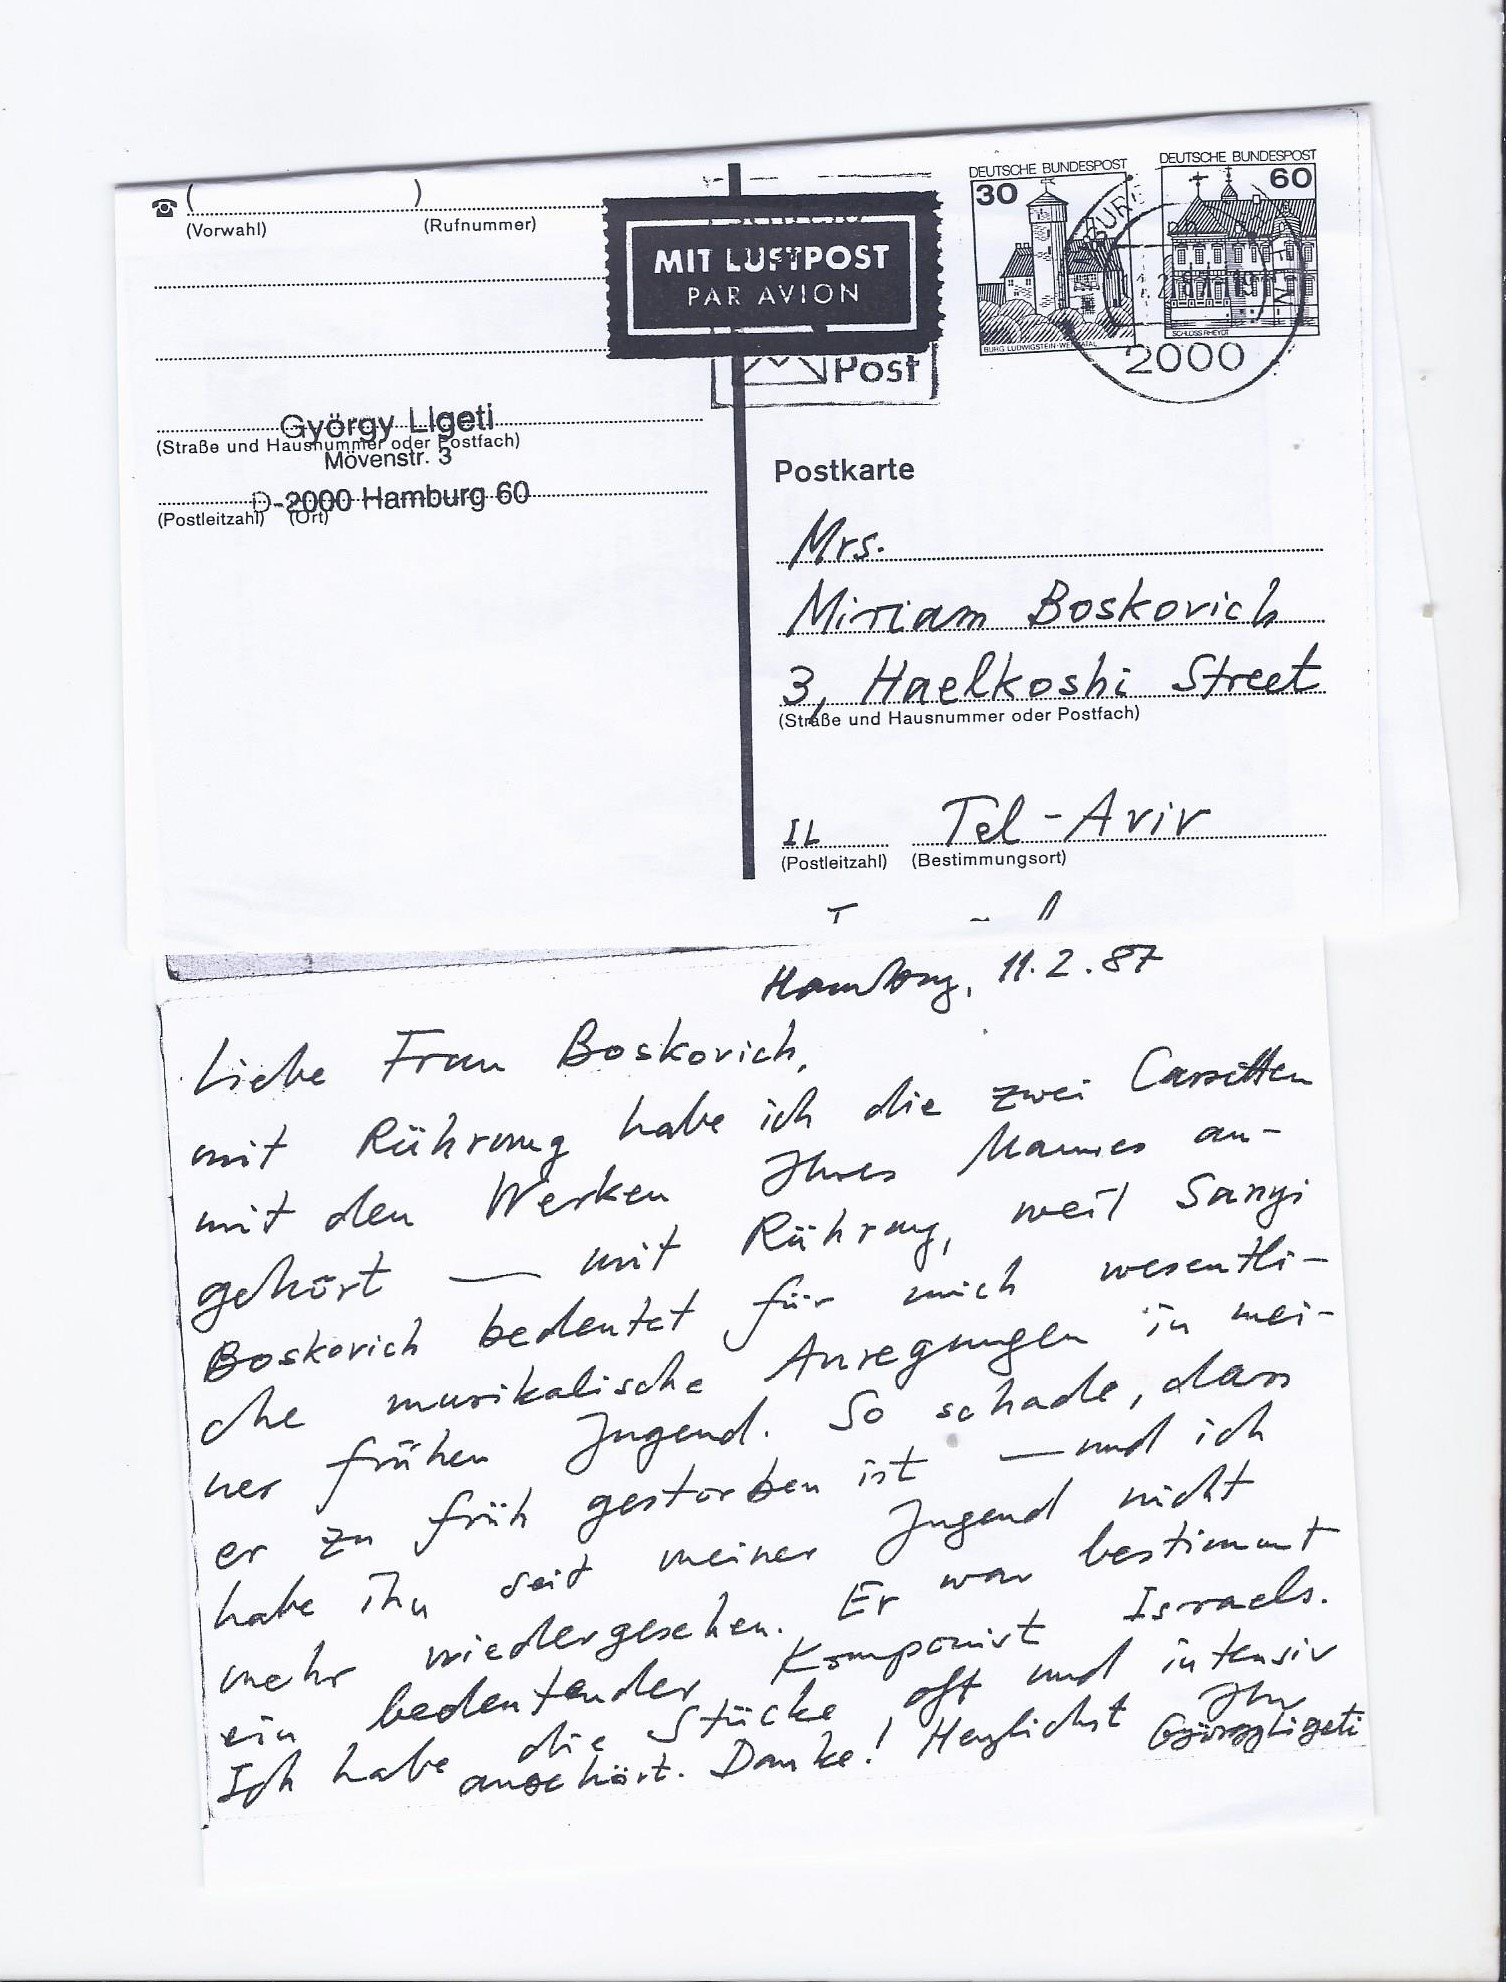 ☎ ( )
(Vorwahl) (Rufnummer)
MIT LUFTPOST
PAR AVION
Post
DEUTSCHE BUNDESPOST
30
BURG LUDWIGSTEIN-WERRATAL
DEUTSCHE BUNDESPOST
60
SCHLOSS RHEYDT
2000
György Ligeti
(Straße und Hausnummer oder Postfach)
Mövenstr. 3
D-2000 Hamburg 60
(Postleitzahl) (Ort)
Postkarte
Mrs.
Miriam Boskovich
3, Haelkoshi Street
(Straße und Hausnummer oder Postfach)
IL Tel-Aviv
(Postleitzahl) (Bestimmungsort)
Hamburg, 11.2.87
Liebe Frau Boskovich,
mit Rührung habe ich die zwei Cassetten
mit den Werken Ihres Mannes an-
gehört — mit Rührung, weil Sanyi
Boskovich bedeutet für mich wesentli-
che musikalische Anregungen in mei-
ner frühen Jugend. So schade, dass
er zu früh gestorben ist — und ich
habe ihn seit meiner Jugend nicht
mehr wiedergesehen. Er war bestimmt
ein bedeutender Komponist Israels.
Ich habe die Stücke oft und intensiv
angehört. Danke! Herzlichst Ihr
György Ligeti